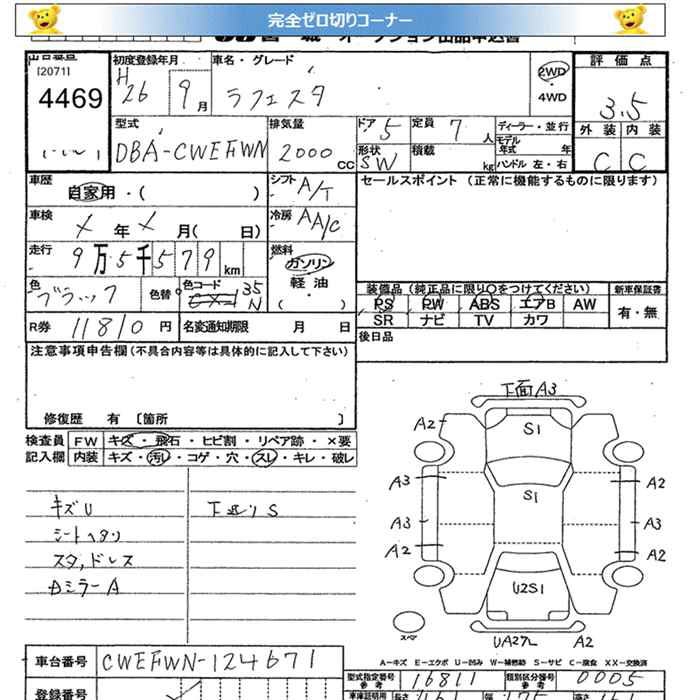 完全ゼロ切りコーナー
オークション出品申込書
出品番号
[2071]
4469
初度登録年月
H 26 9月
車名・グレード
ラフェスタ
2WD
・
4WD
評価点
3.5
外装 内装
C C
型式
DBA-CWEFWN
排気量
2000 CC
ドア 5
定員 7 人
形状 SW
積載 kg
ディーラー・並行
モデル年式 年
ハンドル 左・右
車歴
自家用・( )
シフト A/T
セールスポイント (正常に機能するものに限ります)
車検
メ 年 メ 月( 日)
冷房 AA/C
走行
9万5千579 km
燃料
ガソリン
軽油
・
( )
色 ブラック
色替
色コード
35N
装備品(純正品に限り〇をつけてください)
新車保証書
PS PW ABS エアB AW
SR ナビ TV カワ
有・無
R券 11810 円
名変通知期限 月 日
後日品
注意事項申告欄(不具合内容等は具体的に記入して下さい)
修復歴 有 〔箇所 〕
検査員
記入欄
FW キズ・飛石・ヒビ割・リペア跡・×要
内装 キズ・汚レ・コゲ・穴・スレ・キレ・破レ
キズU
シートヘタリ
スタ,ドレス
Dミラー A
下廻り S
下面A3
A2
S1
A3
S1
A2
A3
A3
A2
A2
U2S1
スペア
UA27L
A2
A-キズ E-エクボ U-凹み W-補修跡 S-サビ C-腐食 XX-交換済
車台番号 CWEFWN-124671
型式指定番号
参考
16811
類別区分番号
参考
0005
登録番号
車庫証明用
長さ
幅
高さ